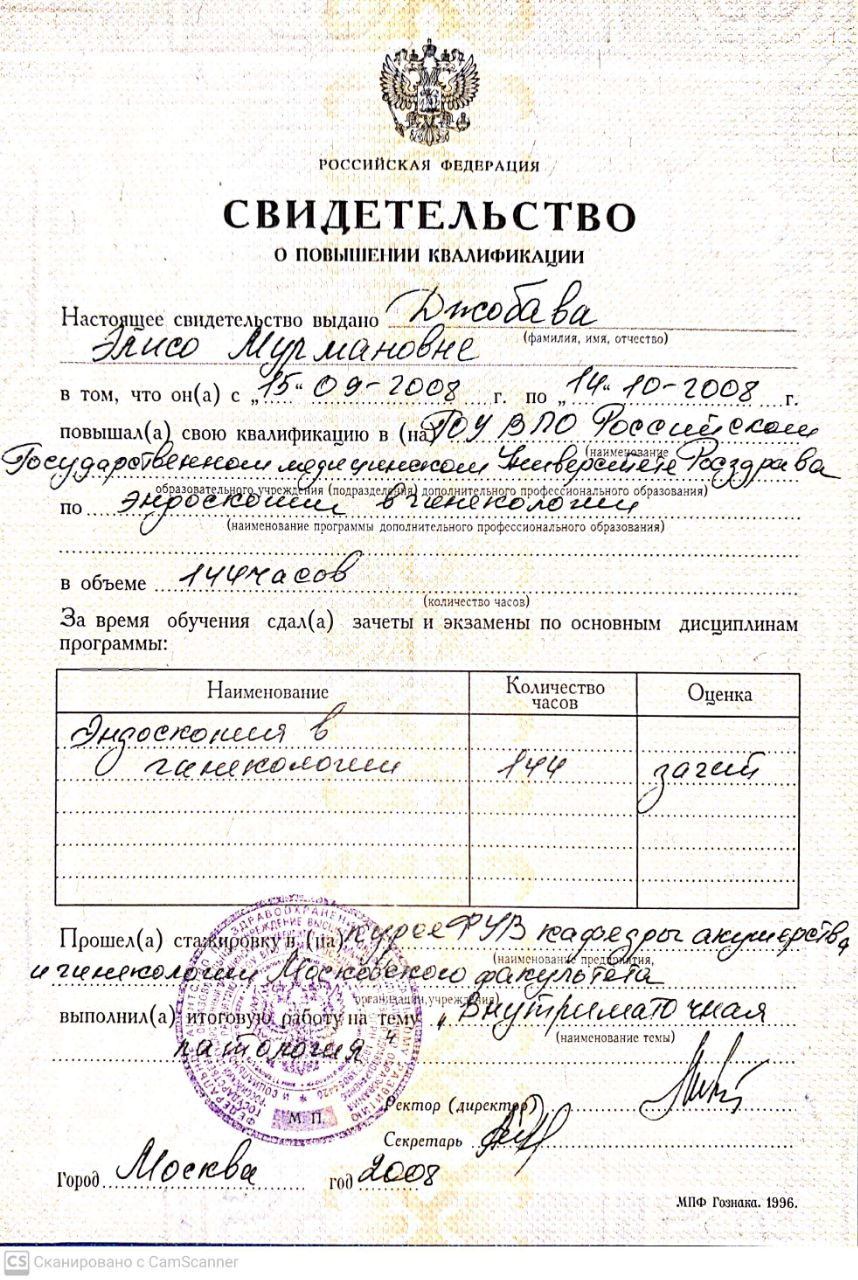 РОССИЙСКАЯ ФЕДЕРАЦИЯ
СВИДЕТЕЛЬСТВО
О ПОВЫШЕНИИ КВАЛИФИКАЦИИ
Настоящее свидетельство выдано Джобава
(фамилия, имя, отчество)
Элисо Мурмановне
в том, что он(а) с „15" 09-2008 г. по „14" 10-2008 г.
повышал(а) свою квалификацию в (на) ГОУ ВПО Российском
(наименование
Государственном медицинском Университете Росздрава
образовательного учреждения (подразделения) дополнительного профессионального образования)
по эндоскопии в гинекологии
(наименование программы дополнительного профессионального образования)
в объеме 144 часов
(количество часов)
За время обучения сдал(а) зачеты и экзамены по основным дисциплинам
программы:
Наименование Количество часов Оценка
Эндоскопия в
гинекологии 144 зачет
Прошел(а) стажировку в (на) курсе ФУВ кафедры акушерства
(наименование предприятия,
и гинекологии Московского факультета
организации, учреждения)
выполнил(а) итоговую работу на тему „Внутриматочная
(наименование темы)
патология"
Ректор (директор)
Секретарь
М П.
Город Москва год 2008
МПФ Гознака. 1996.
CS Сканировано с CamScanner